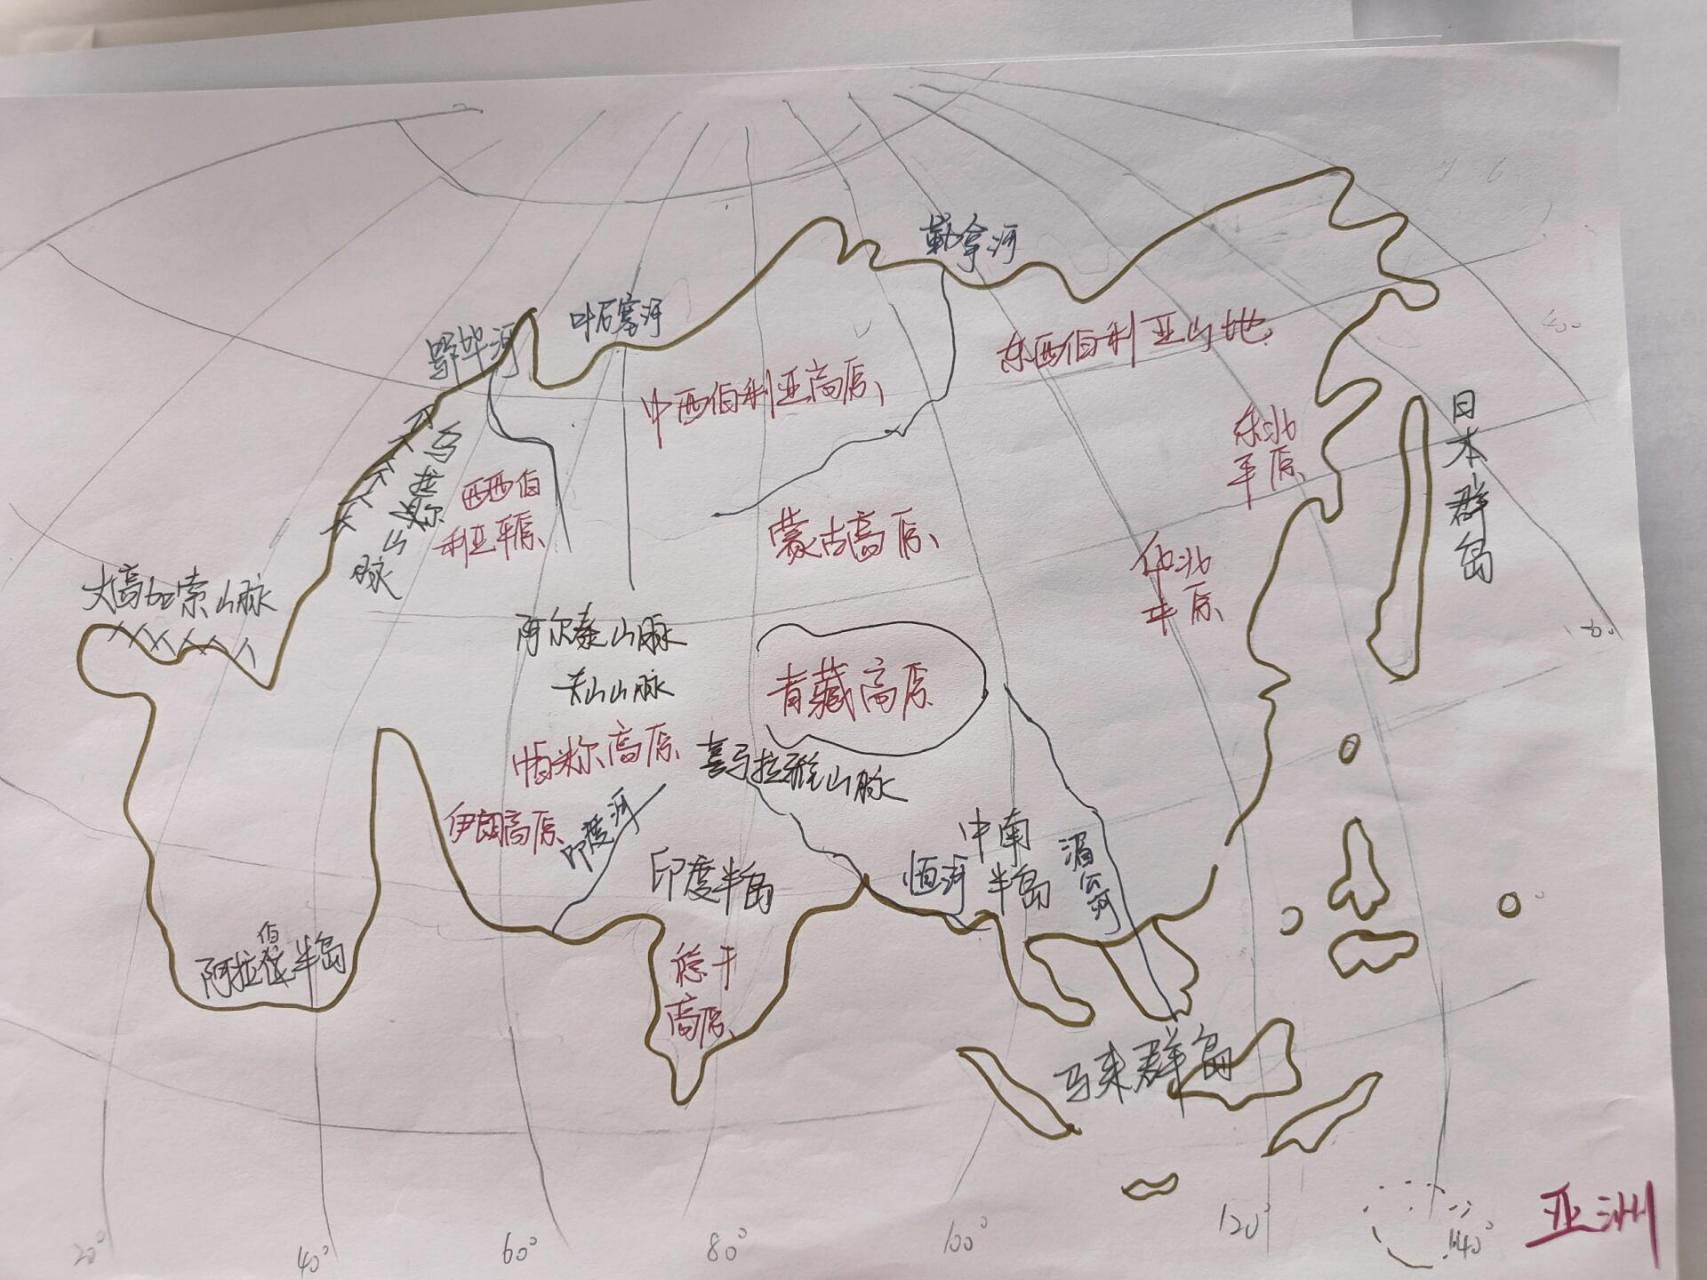 勒拿河
叶尼塞河
鄂毕河
东西伯利亚山地
中西伯利亚高原
乌拉尔山脉
西西伯
利亚平原
蒙古高原
东北
平原
华北
平原
日本群岛
大高加索山脉
阿尔泰山脉
天山山脉
青藏高原
帕米尔高原
喜马拉雅山脉
伊朗高原
印度河
印度半岛
恒河
中南
半岛
湄公河
阿拉伯半岛
德干
高原
马来群岛
亚洲
20°
40°
60°
80°
100°
120°
140°